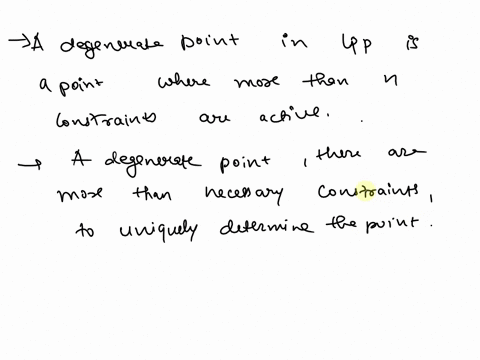 → A degenerate point in LPP is
a point where more than n
constraints are active.
→ A degenerate point, there are
more than necessary constraints,
to uniquely determine the point.